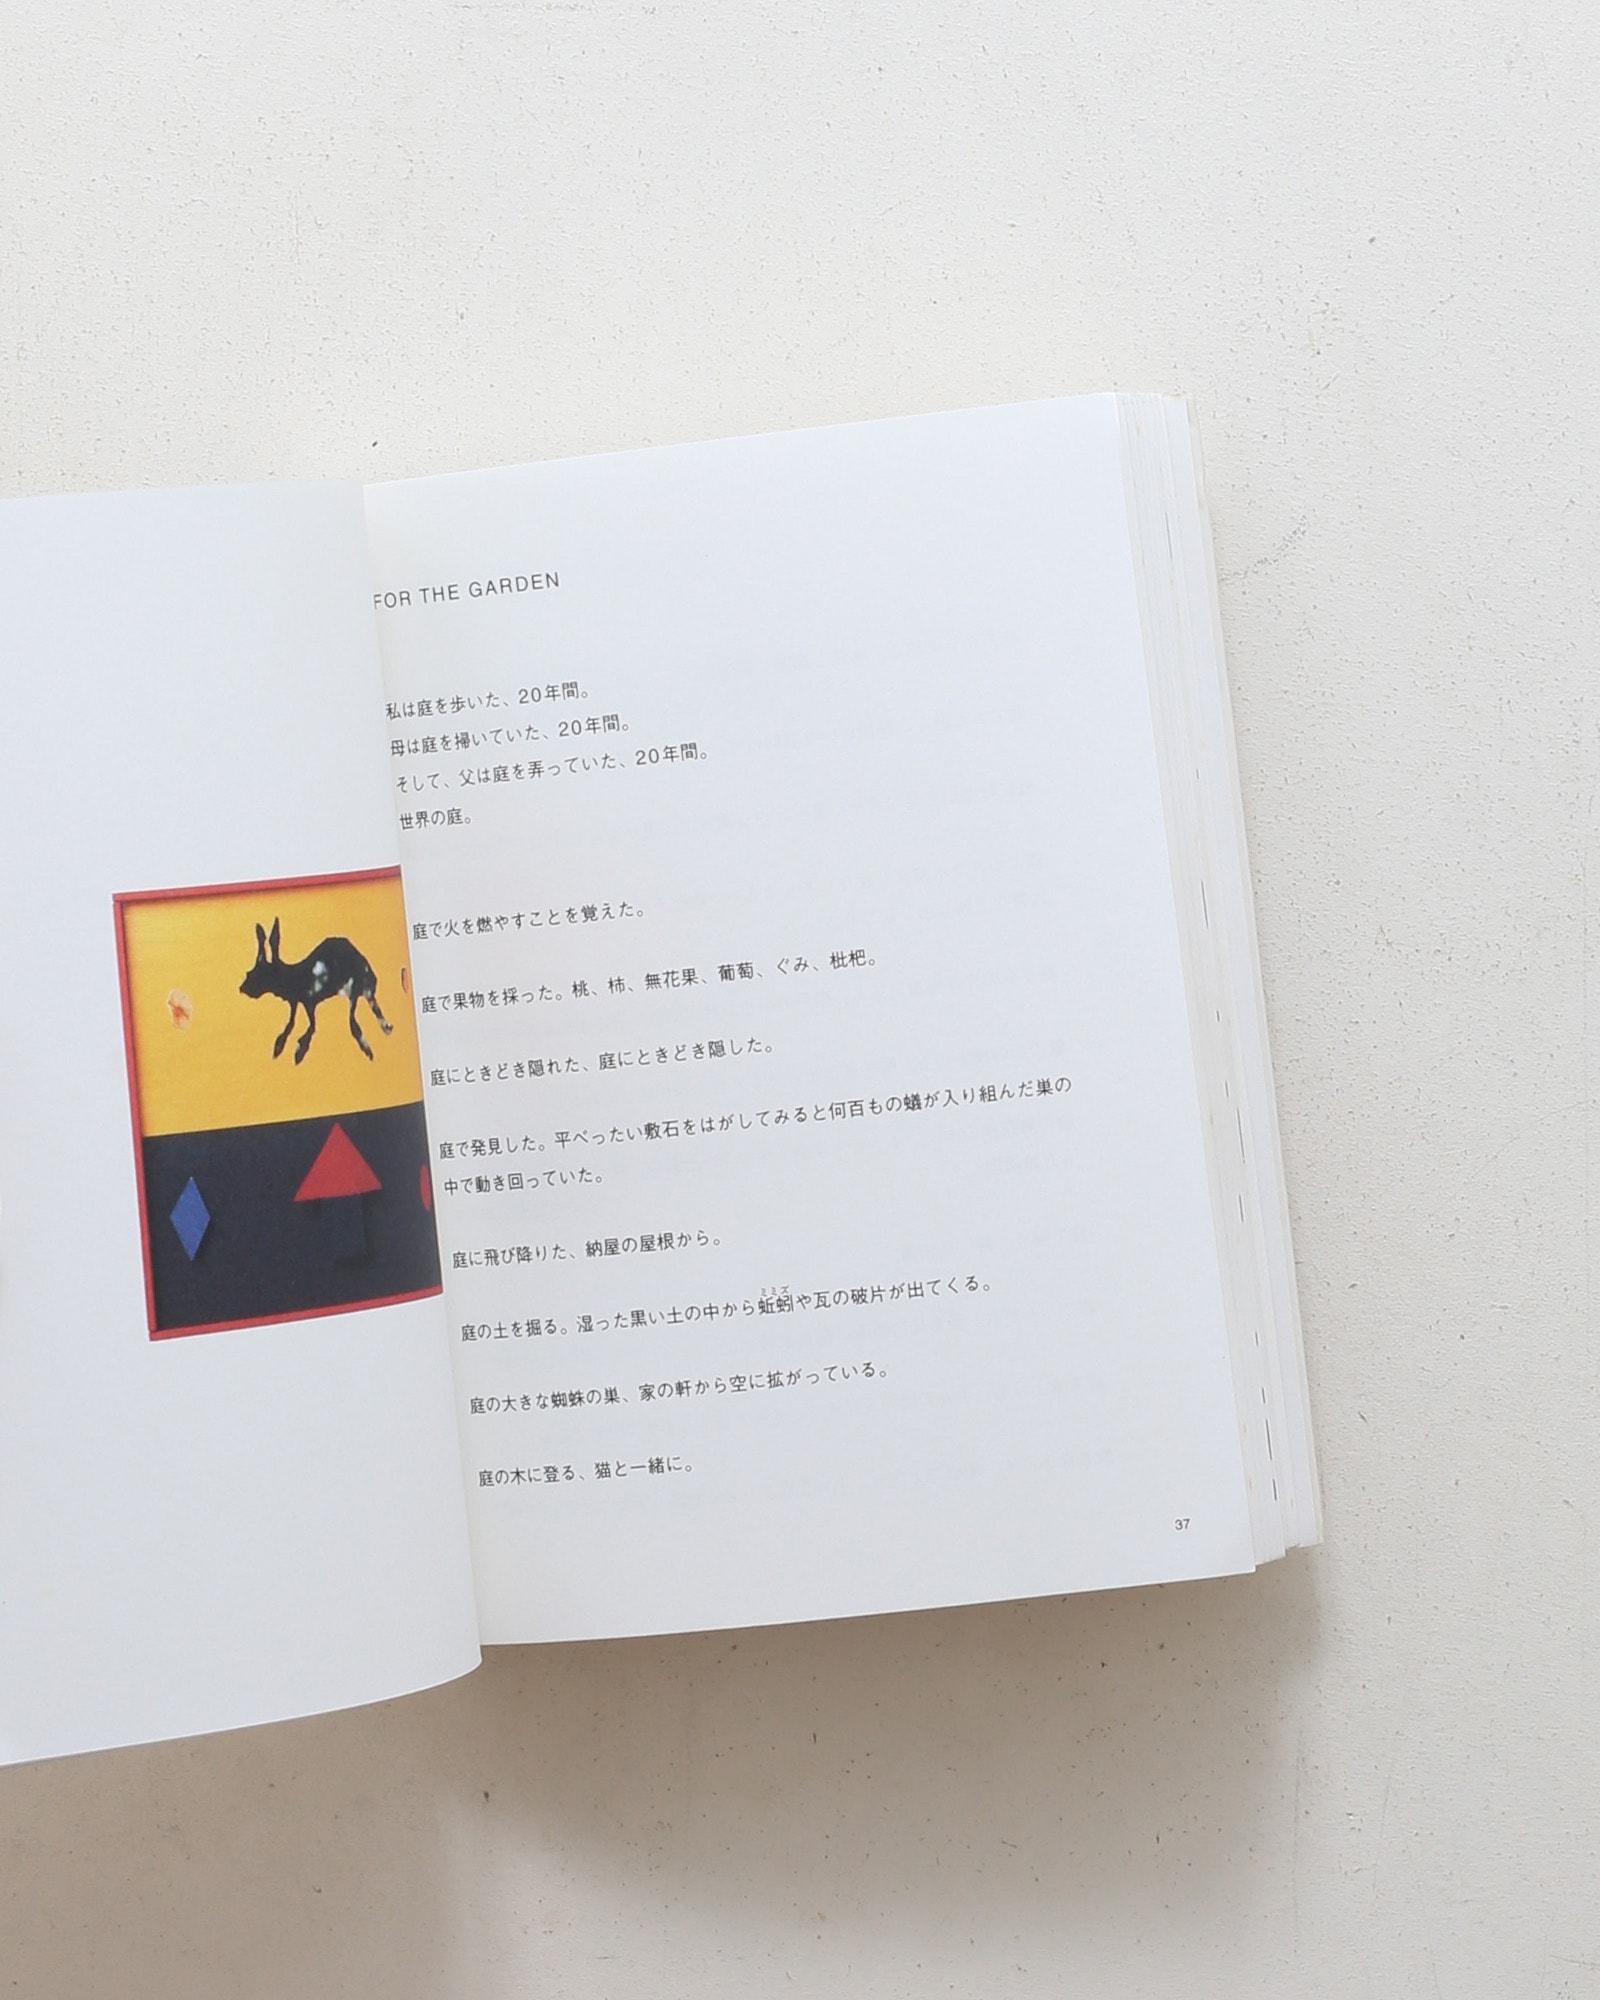 FOR THE GARDEN
私は庭を歩いた、20年間。
母は庭を掃いていた、20年間。
そして、父は庭を弄っていた、20年間。
世界の庭。
庭で火を燃やすことを覚えた。
庭で果物を採った。桃、柿、無花果、葡萄、ぐみ、枇杷。
庭にときどき隠れた、庭にときどき隠した。
庭で発見した。平べったい敷石をはがしてみると何百もの蟻が入り組んだ巣の
中で動き回っていた。
庭に飛び降りた、納屋の屋根から。
ミミズ
庭の土を掘る。湿った黒い土の中から蚯蚓や瓦の破片が出てくる。
庭の大きな蜘蛛の巣、家の軒から空に拡がっている。
庭の木に登る、猫と一緒に。
37